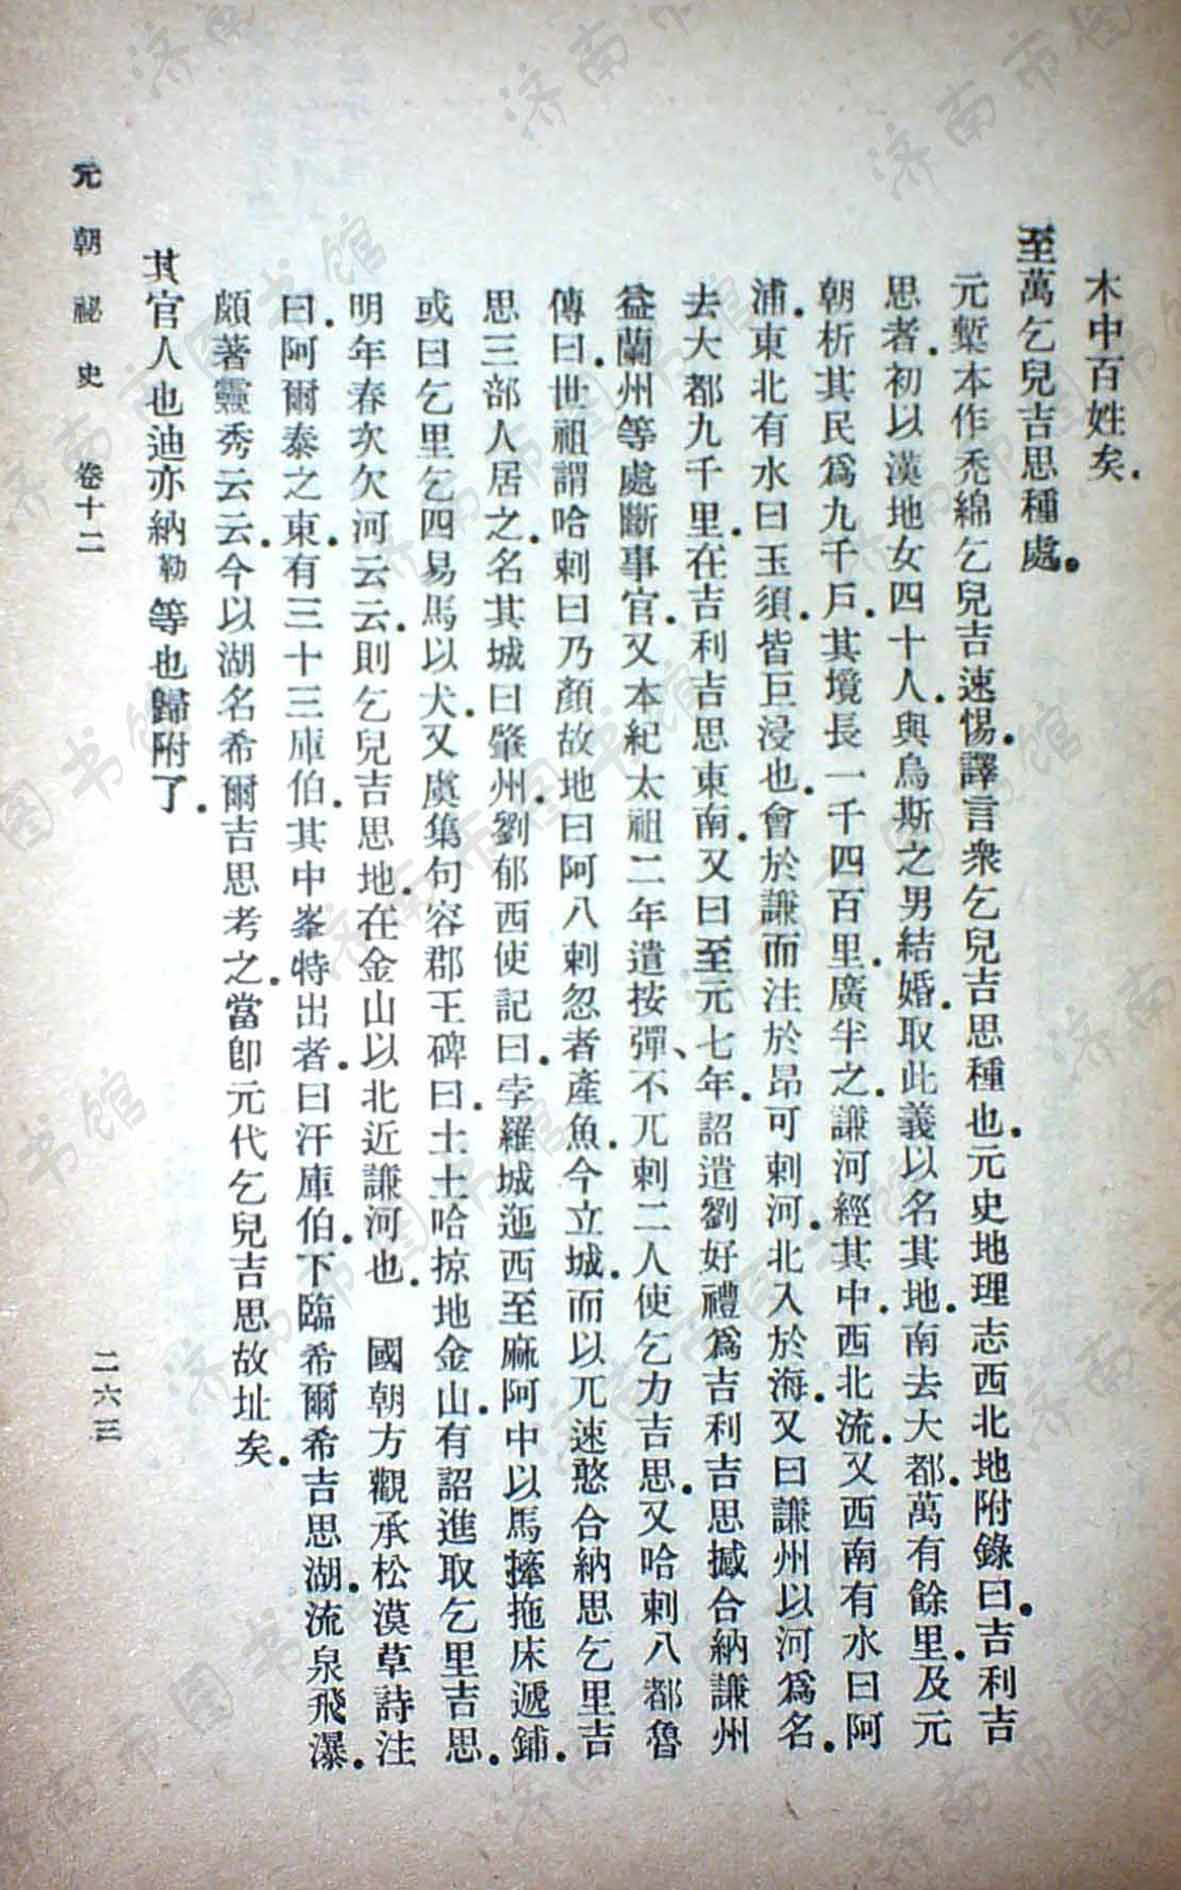 木中百姓矣.
至萬乞兒吉思種處.
元槧本作禿綿乞兒吉速惕.譯言衆乞兒吉思種也.元史地理志西北地附錄曰.吉利吉
思者.初以漢地女四十人.與烏斯之男結婚.取此義以名其地.南去大都.萬有餘里.及元
朝析其民爲九千戶.其境長一千四百里.廣半之.謙河經其中.西北流.又西南有水曰阿
浦.東北有水曰玉須.皆巨浸也.會於謙而注於昂可剌河.北入於海.又曰謙州以河爲名.
去大都九千里.在吉利吉思東南.又曰至元七年.詔遣劉好禮爲吉利吉思撼合納謙州
益蘭州等處斷事官.又本紀太祖二年遣按彈、不兀剌二人使乞力吉思.又哈剌八都魯
傳曰.世祖謂哈剌曰乃顏故地曰阿八剌忽者產魚.今立城.而以兀速憨合納思乞里吉
思三部人居之.名其城曰肇州.劉郁西使記曰.孛羅城迤西至麻阿中以馬擡拖床遞鋪.
或曰乞里乞四易馬以犬.又虞集句容郡王碑曰.土土哈掠地金山.有詔進取乞里吉思.
明年春次欠河云云.則乞兒吉思地.在金山以北近謙河也.　國朝方觀承松漠草詩注
曰.阿爾泰之東.有三十三庫伯.其中峯特出者.曰汗庫伯.下臨希爾希吉思湖.流泉飛瀑.
頗著靈秀云云.今以湖名希爾吉思考之.當卽元代乞兒吉思故址矣.
其官人也迪亦納勒等也歸附了.
元朝祕史　卷十二　二六三